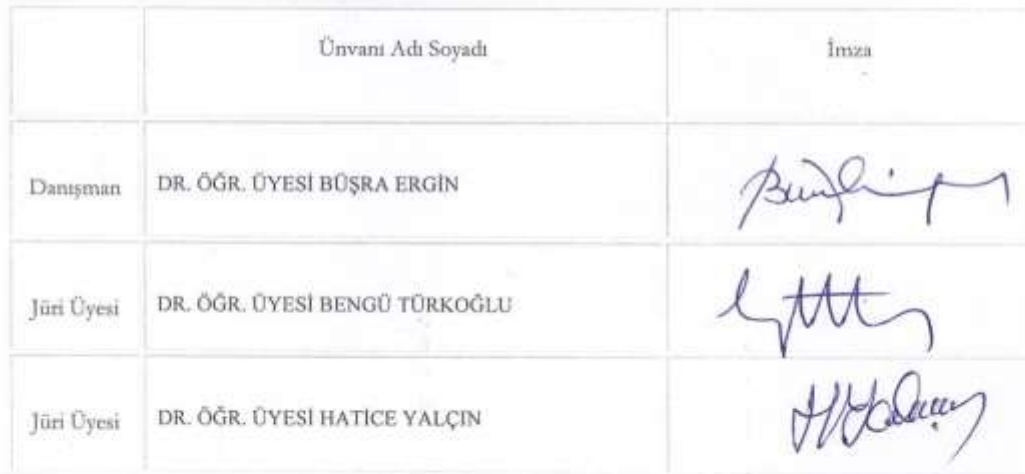 Ünvanı Adı Soyadı İmza
Danışman DR. ÖĞR. ÜYESİ BÜŞRA ERGİN
Jüri Üyesi DR. ÖĞR. ÜYESİ BENGÜ TÜRKOĞLU
Jüri Üyesi DR. ÖĞR. ÜYESİ HATİCE YALÇIN